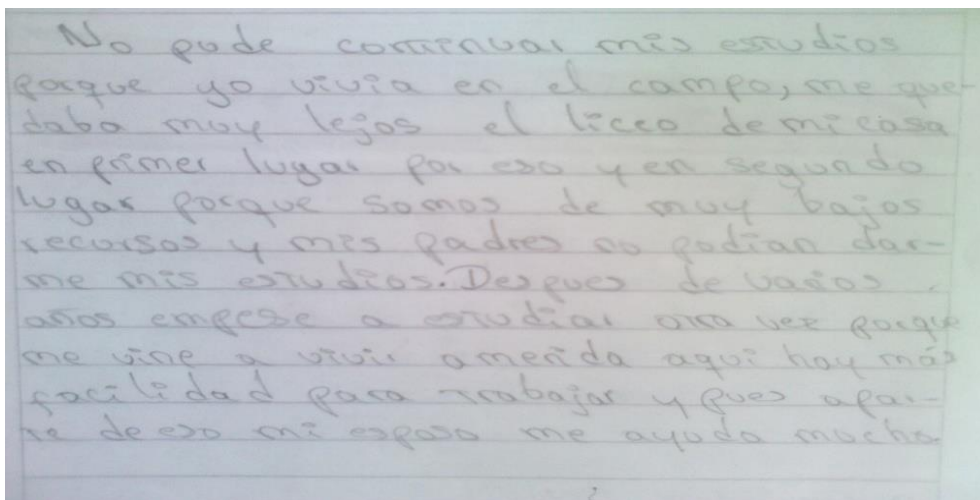 No pude continuar mis estudios
porque yo vivia en el campo, me que-
daba muy lejos el liceo de mi casa
en primer lugar por eso y en segundo
lugar porque somos de muy bajos
recursos y mis padres no podian dar-
me mis estudios. Despues de varios
años empese a estudiar otra vez porque
me vine a vivir a merida aqui hay más
facilidad para trabajar y pues apar-
te de eso mi esposo me ayuda mucho.